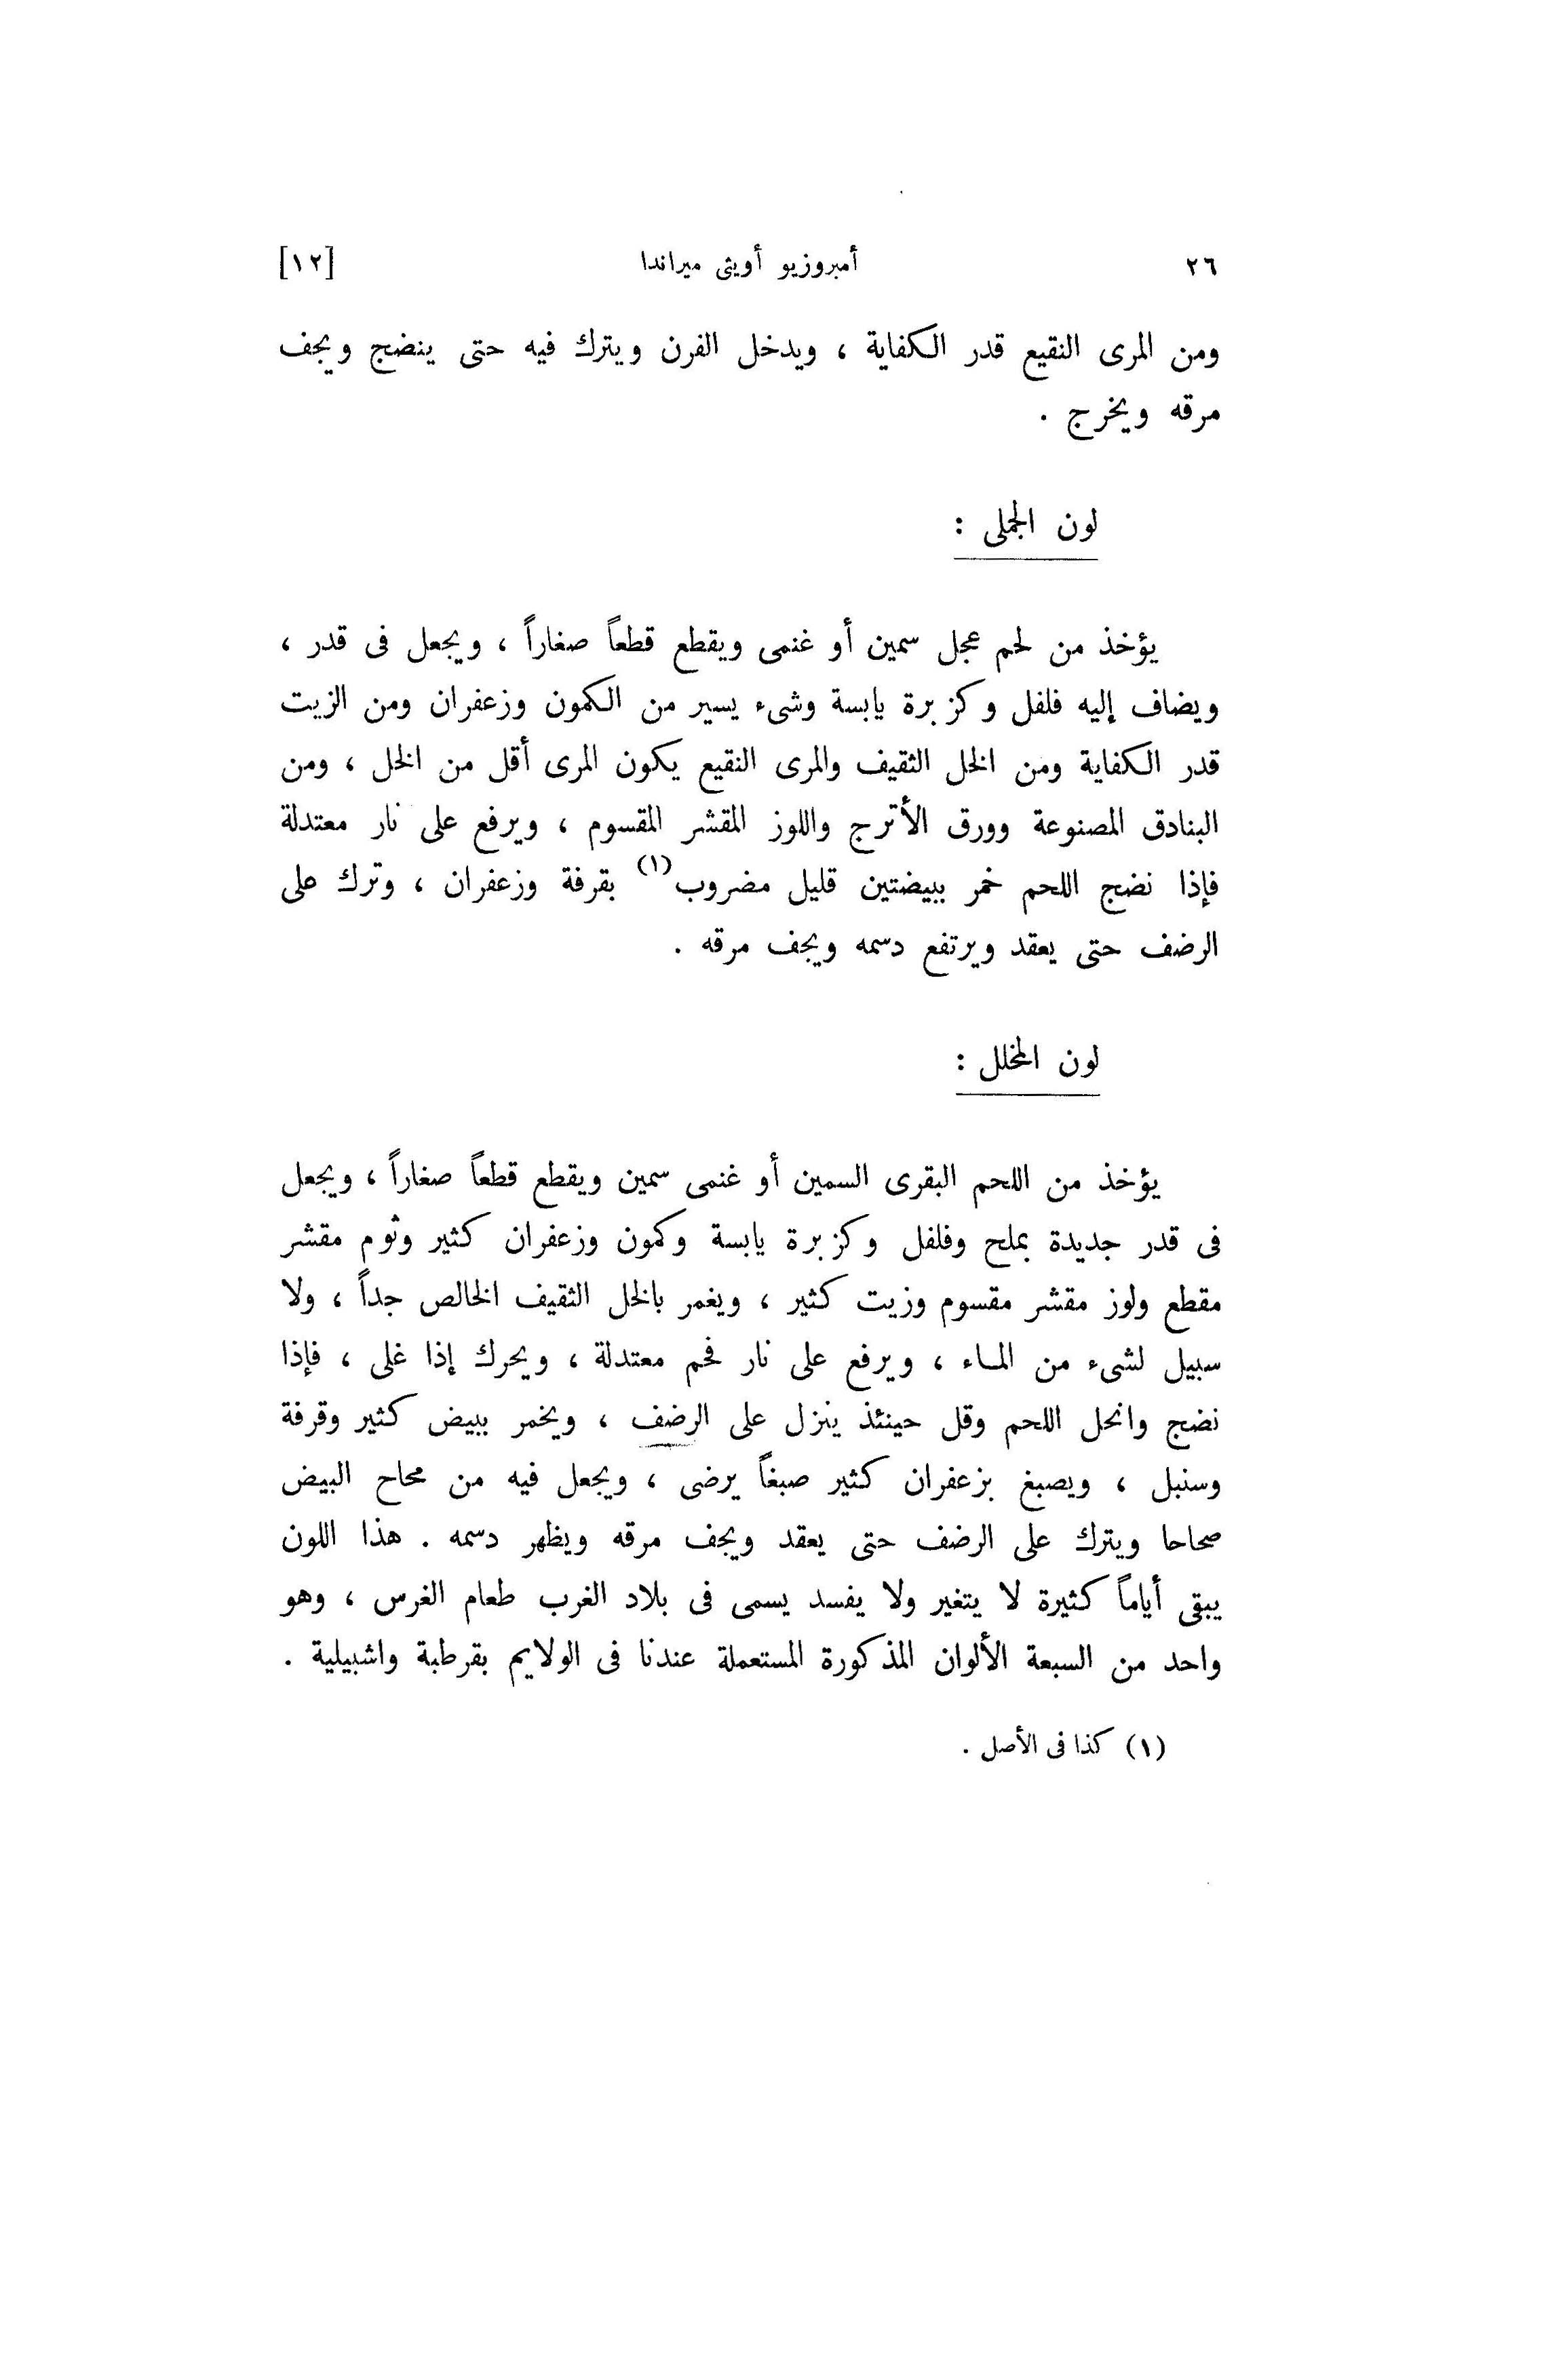 ٢٦ أمبروزيو أويثى ميراندا [١٢]
ومن المرى النقيع قدر الكفاية ، ويدخل الفرن ويترك فيه حتى ينضج ويجف
مرقه ويخرج .
لون الجملى :
يؤخذ من لحم عجل سمين أو غنمى ويقطع قطعاً صغاراً ، ويجعل فى قدر ،
ويضاف إليه فلفل وكزبرة يابسة وشىء يسير من الكمون وزعفران ومن الزيت
قدر الكفاية ومن الخل الثقيف والمرى النقيع يكون المرى أقل من الخل ، ومن
البنادق المصنوعة وورق الأترج واللوز المقشر المقسوم ، ويرفع على نار معتدلة
فإذا نضج اللحم خمر ببيضتين قليل مضروب(١) بقرفة وزعفران ، وترك على
الرضف حتى يعقد ويرتفع دسمه ويجف مرقه .
لون المخلل :
يؤخذ من اللحم البقرى السمين أو غنمى سمين ويقطع قطعاً صغاراً ، ويجعل
فى قدر جديدة بملح وفلفل وكزبرة يابسة وكمون وزعفران كثير وثوم مقشر
مقطع ولوز مقشر مقسوم وزيت كثير ، ويغمر بالخل الثقيف الخالص جداً ، ولا
سبيل لشىء من المـاء ، ويرفع على نار فحم معتدلة ، ويحرك إذا غلى ، فإذا
نضج وانحل اللحم وقل حينئذ ينزل على الرضف ، ويخمر ببيض كثير وقرفة
وسنبل ، ويصبغ بزعفران كثير صبغاً يرضى ، ويجعل فيه من محاح البيض
صحاحا ويترك على الرضف حتى يعقد ويجف مرقه ويظهر دسمه . هذا اللون
يبقى أياماً كثيرة لا يتغير ولا يفسد يسمى فى بلاد الغرب طعام الغرس ، وهو
واحد من السبعة الألوان المذكورة المستعملة عندنا فى الولايم بقرطبة واشبيلية .
(١) كذا فى الأصل .